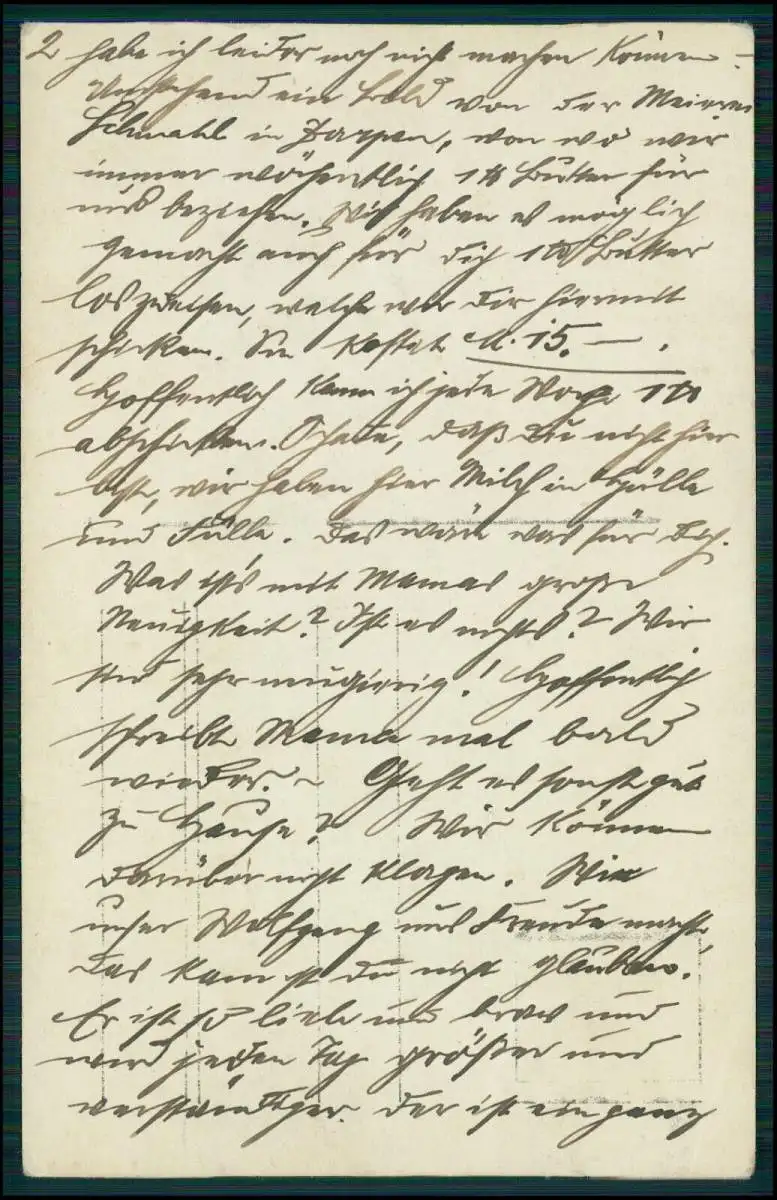 2 habe ich leider noch nicht machen können –
Umstehend ein Bild von der Meierei
Schmahl in Zarpen, von wo wir
immer wöchentlich 1 ℔ Butter für
uns beziehen. Wir haben es möglich
gemacht auch für dich 1 ℔ Butter
loszueisen, welche wir dir hiermit
schicken. Sie kostet M. 15.—.
Hoffentlich kann ich jede Woche 1 ℔
abschicken. Schade, daß du nicht hier
bist, wir haben hier Milch in Hülle
und Fülle. Das wäre was für dich.
Was ist's mit Mamas große
Neuigkeit? Ist es nichts? Wir
sind sehr neugierig! Hoffentlich
schreibt Mama mal bald
wieder. – Geht es sonst gut
zu Hause? Wir können
darüber nicht klagen. Wie
unser Wolfgang uns Freude macht,
das kannst du nicht glauben.
Er ist so lieb und brav und
wird jeden Tag größer und
verständiger. Der ist ein ganz